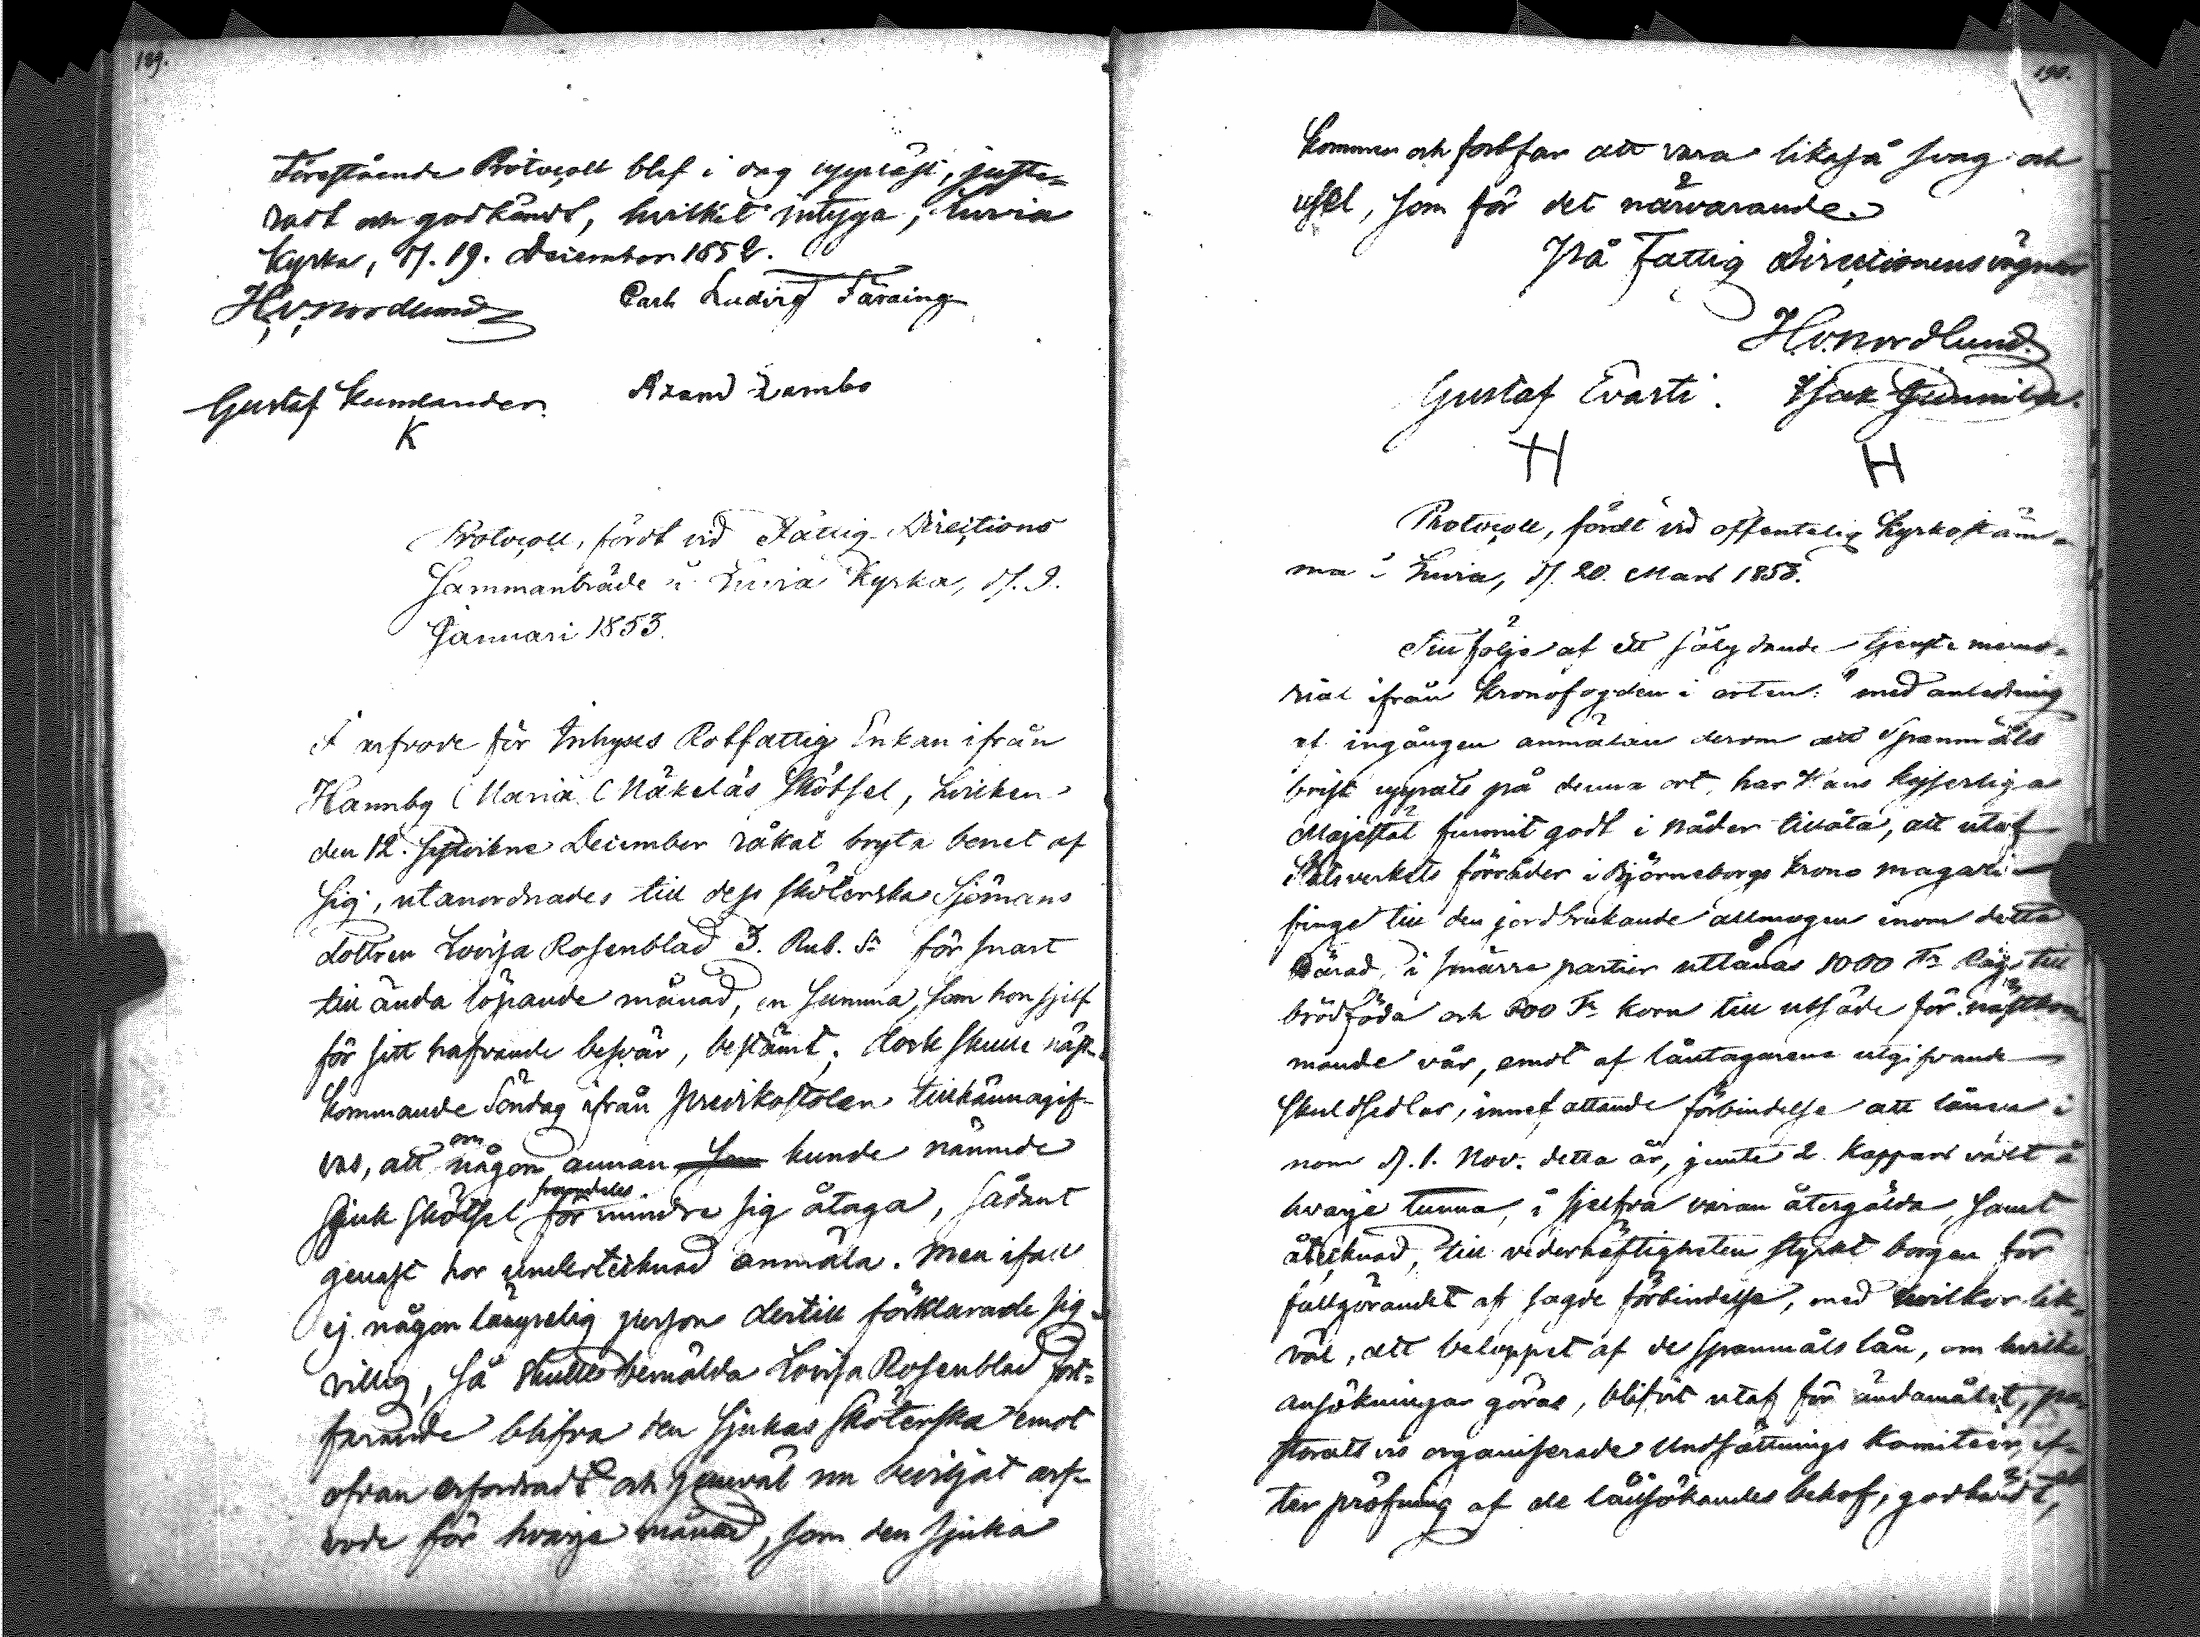 189.
Förestående Protocoll blef i dag uppläst, juste-
radt och godkändt, hvilket intyga, Luvia
Kyrka, d. 19. December 1852.
H. v. Nordlund Carl Ludvig Färling
Gustaf Kumlander. Lambo
K
Protocoll, fördt vid Fattig-Directions
Sammanträde i Luvia Kyrka, d. 9.
Januari 1853.
I arfvode för Inhyses Rotfattig Enkan ifrån
Hannby Maria Mäkeläs Skötsel, hvilken
den 12. sistvikne December råkat bryta benet af
sig, utanordnades till dess sköterska Sjömans
dottren Lovisa Rosenblad 3. Rub. Sr för snart
till ända löpande månad, en summa, som hon sjelf
för sitt hafvande besvär, bestämt; dock skulle näst-
kommande Söndag ifrån predikostolen tillkännagif-
vas, att om någon annan kunde nämnde
Sjuk Skötsel framdeles för mindre sig åtaga, sådant
genast hos undertecknad anmäla. Men ifall
ej någon lämpelig person dertill förklarade sig
villig, så skulle bemälda Lovisa Rosenblad fort-
farande blifva den sjukas Sköterska emot
ofvan erfordradt och jemväl nu beviljat arf-
vode för hvarje månad, som den sjuka
190.
kommer och fortfar att vara likaså svag och
usel, som för det närvarande.
På Fattig Directionens vägnar
H. v. Nordlund.
Gustaf Evarsti. Isak Gunnila.
H H
Protocoll, fördt vid offentelig Kyrkostäm-
ma i Luvia, d. 20. Mars 1853.
Till följe af ett sålydande tjenste memo-
rial ifrån Kronofogden i orten: "med anledning
af ingången anmälan derom att Spanmåls
brist yppats på denna ort, har Hans Kejserliga
Majestät funnit godt i nåder tillåta, att utaf
Statsverkets förråder i Björneborgs krono magazin
finge till den jordbrukande allmogen inom detta
Härad, i smärre partier uttagas 1000 Tr Råg till
brödföda och 500 Tr korn till utsäde för nästkom
mande vår, emot af låntagarene utgifvande
Skuldsedlar, innefattande förbindelse att lånen i
nom d. 1. Nov. detta år, jemte 2. kappars växt å
hvarje tunna, i sjelfva varan återgälda, samt
åtecknad, till vederhäftigheten styrkt borgen för
fullgörandet af sagde förbindelse, med vilkor lik-
väl, att beloppet af de spanmåls lån, om hvilka
ansökningar göras, blifvit utaf för ändamålet, pa-
storatsvis organiserade Undsättnings Komiteer, ef-
ter pröfning af de lånsökandes behof, godkändt,